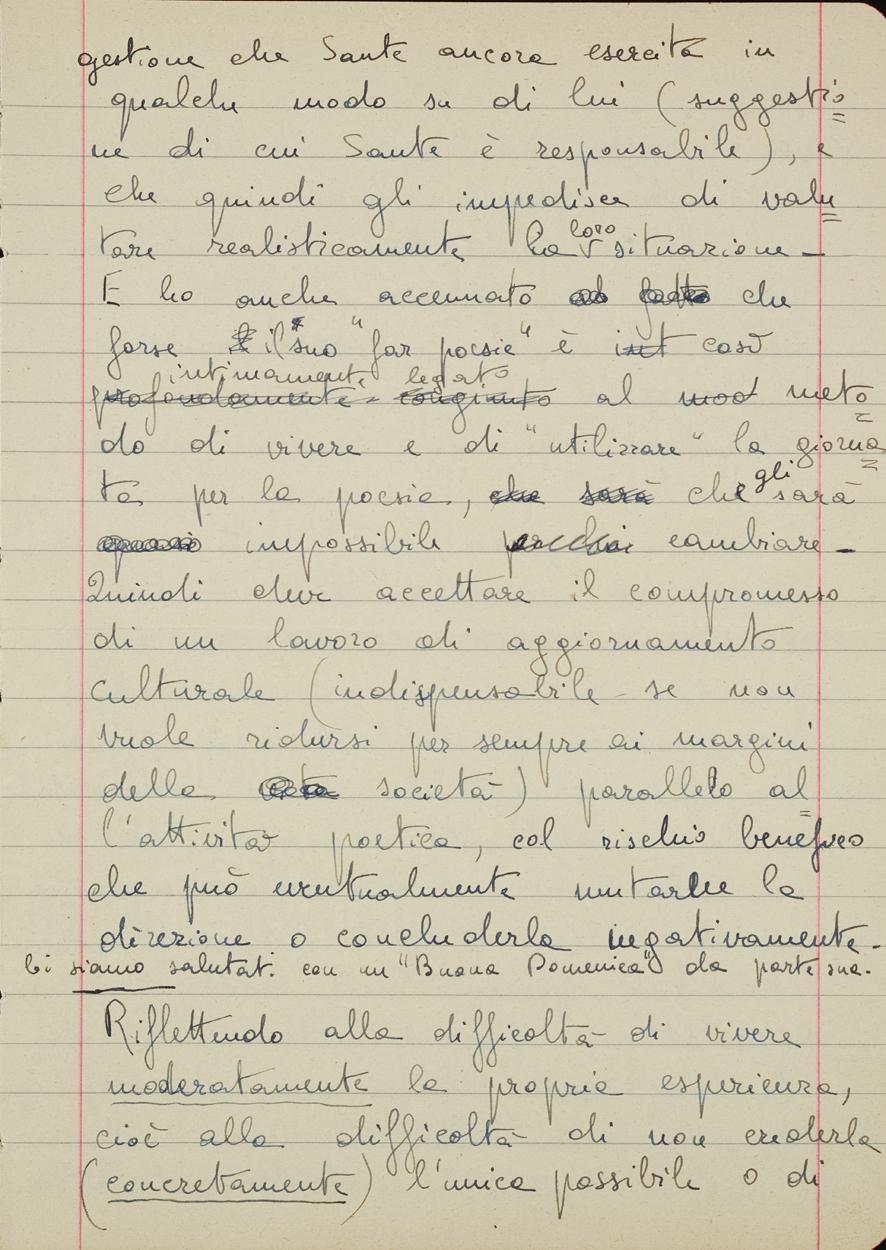 gestione che Sante ancora esercita in
qualche modo su di lui (suggestio=
ne di cui Sante è responsabile), e
che quindi gli impedisce di valu=
tare realisticamente la loro situazione -
E ho anche accennato ad fatto che
forse il suo "far poesie" è int così
intimamente legato
profondamente congiunto al mod meto=
do di vivere e di "utilizzare" la giorna=
ta per la poesia, che sarà che gli sarà
quasi impossibile perchè cambiare -
Quindi deve accettare il compromesso
di un lavoro di aggiornamento
culturale (indispensabile se non
vuole ridursi per sempre ai margini
della società) parallelo al=
l'attività poetica, col rischio benefico
che può eventualmente mutarne la
direzione o concluderla negativamente.
Ci siamo salutati con un "Buona Domenica" da parte sua.
Riflettendo alla difficoltà di vivere
moderatamente la propria esperienza,
cioè alla difficoltà di non crederla
(concretamente) l'unica possibile o di